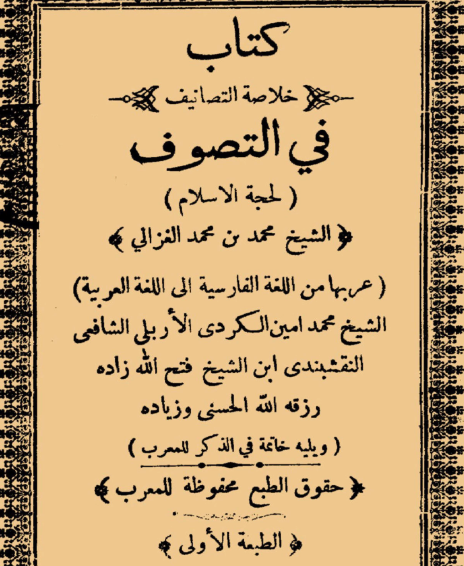 كتاب
خلاصة التصانيف
في التصوف
( لحجة الاسلام )
﴿ الشيخ محمد بن محمد الغزالي ﴾
( عربها من اللغة الفارسية الى اللغة العربية )
الشيخ محمد امين الكردى الأربلى الشافعى
النقشبندى ابن الشيخ فتح الله زاده
رزقه الله الحسنى وزياده
( ويليه خاتمة في الذكر للمعرب )
﴿ حقوق الطبع محفوظة للمعرب ﴾
﴿ الطبعة الأولى ﴾